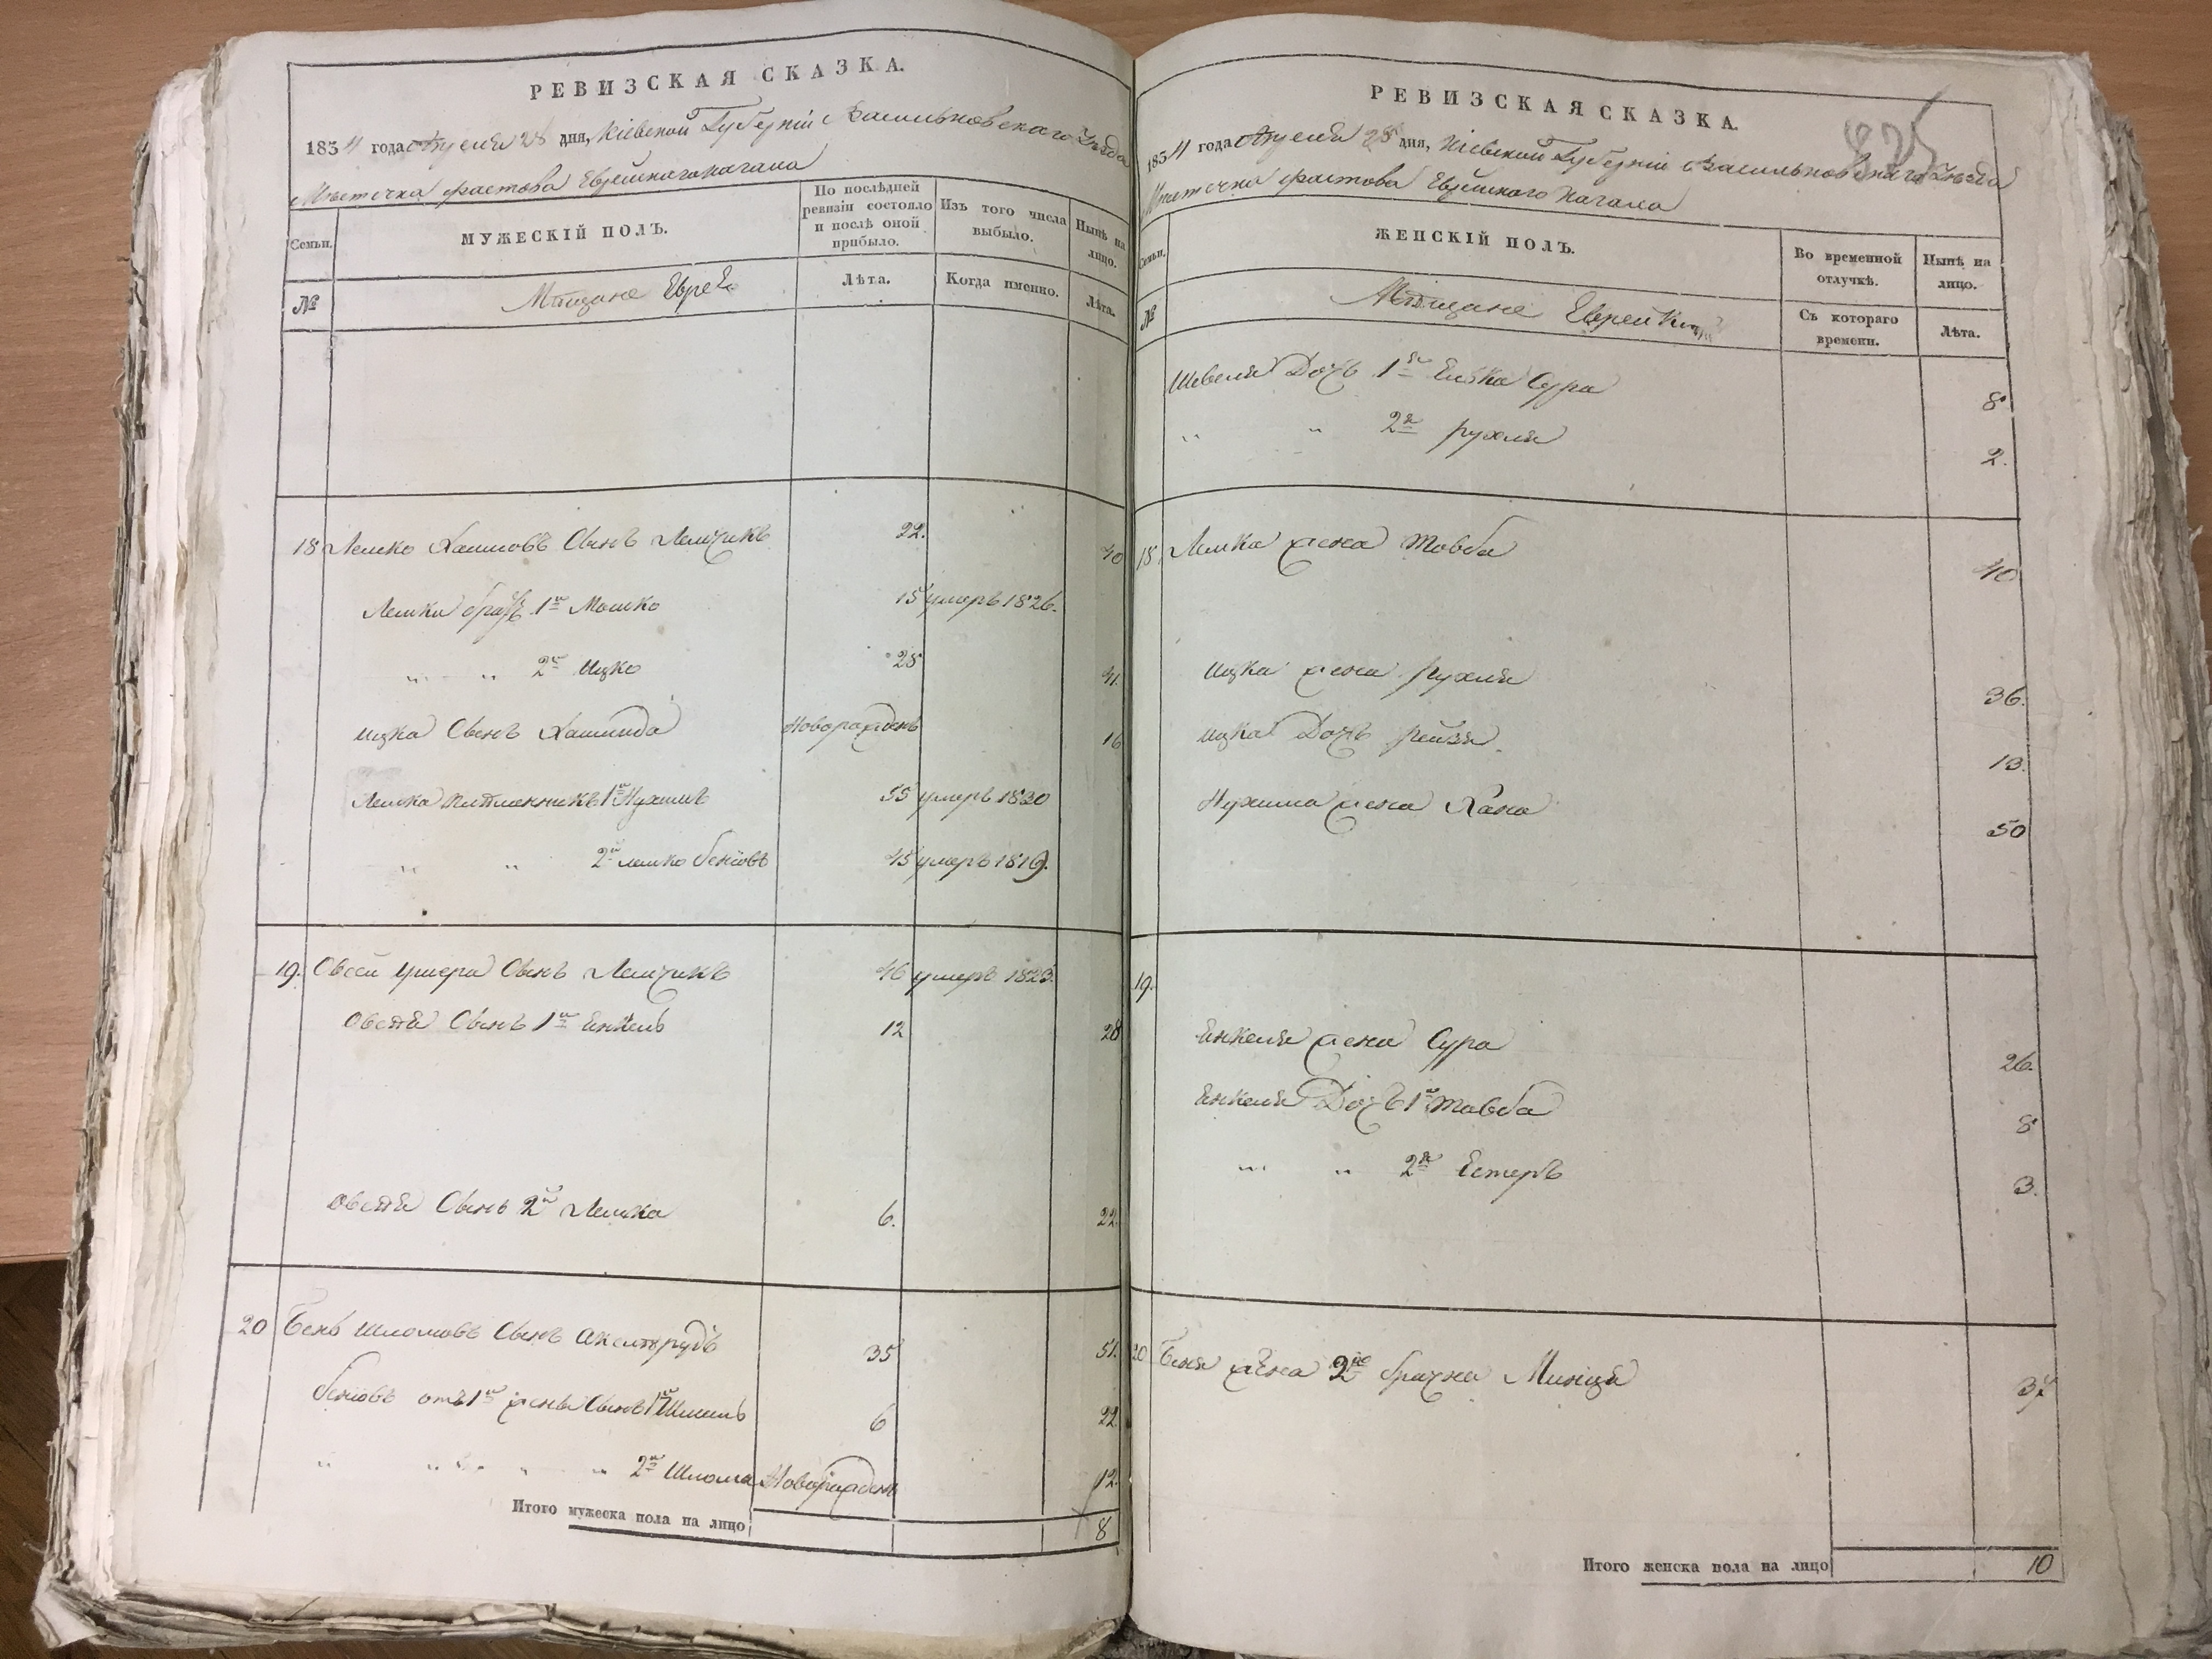 РЕВИЗСКАЯ СКАЗКА.
1834 года Апреля 28 дня, Кіевской Губерніи Васильковского Уѣзда
Мѣстечка Фастова Еврейского кагала
Семьи.
МУЖЕСКІЙ ПОЛЪ.
По послѣдней ревизіи состояло и послѣ оной прибыло.
Изъ того числа выбыло.
Нынѣ на лицо.
№
Мѣщане Евреи
Лѣта.
Когда именно.
Лѣта.
18 Лейко Хаимовъ Сынъ 22. 40
братъ 1й Мошко 15 умеръ 1826.
" " 2й Ицко 25 41.
Ицка Сынъ Новорожденъ 16
племянникъ 1й Нухимъ 55 умеръ 1830
" " 2й 45 умеръ 1819.
19. Овсей Сынъ 46 умеръ 1823.
Овсѣя Сынъ 1й Янкель 12 28
Овсѣя Сынъ 2й 6. 22.
20 Бень Шломовъ Сынъ 35 51.
отъ 1й жены Сынъ 1й 6 22
" " " " " 2й Шлома Новорожденъ 12.
Итого мужеска пола на лицо 8
РЕВИЗСКАЯ СКАЗКА.
1834 года Апреля 28 дня, Кіевской Губерніи Васильковского Уѣзда
Мѣстечка Фастова Еврейского Кагала
Семьи.
ЖЕНСКІЙ ПОЛЪ.
Во временной отлучкѣ.
Нынѣ на лицо.
№
Мѣщане Еврейки
Съ котораго времени.
Лѣта.
Дочь 1я Сура 8
" " 2я Рухля 2.
18. жена Товба 40
Ицка жена Рухля 36.
Ицка Дочь Рейзя 13.
Нухима жена Хана 50
19.
Янкеля жена Сура 26.
Янкеля Дочь 1я Товба 8
" " 2я Естеръ 3.
20 Беня жена 2го брачна 37
Итого женска пола на лицо 10